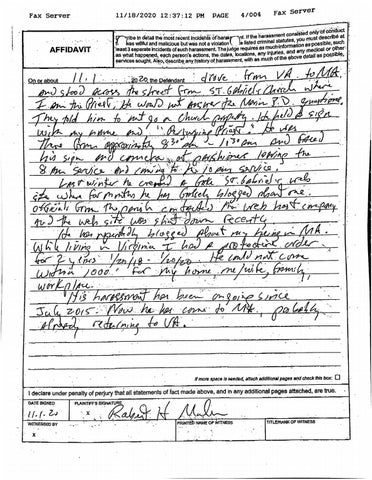 Fax Server 11/18/2020 12:37:12 PM PAGE 4/004 Fax Server
AFFIDAVIT
Describe in detail the most recent incidents of harassment. If the harassment consisted only of conduct
was willful and malicious but was not a violation of listed criminal statutes, you must describe at
least 3 separate incidents of such harassment. The judge requires as much information as possible, such
as what happened, each person's actions, the dates, locations, any injuries, and any medical or other
services sought. Also, describe any history of harassment, with as much of the above detail as possible.
On or about 11.1 2020, the Defendant drove from VA. to MA.
and stood across the street from ST. Gabriel's Church where
I am the Priest. He would not answer the P.D. questions.
They told him to not go on Church property. He held a sign
with my name and "Perjuring Priest". He was
There from approximately 8:30 am - 11:30 am and faced
his sign and camera at parishioners leaving the
8 am service and coming to the 10 am service.
Last winter he created a fake ST. Gabriel's web
site where for months he has falsely blogged about me.
Officials from the parish contacted the web host company
and the web site was shut down recently.
He has repeatedly blogged about my being in MA.
While living in Virginia I had a protective order
for 2 years 1/20/18 - 1/20/20. He could not come
within 1000' for my home, me/wife, family,
workplace.
His harassment has been ongoing since
July 2015. Now he has come to MA, probably
already returning to VA.
If more space is needed, attach additional pages and check this box: ☐
I declare under penalty of perjury that all statements of fact made above, and in any additional pages attached, are true.
DATE SIGNED PLAINTIFF'S SIGNATURE
11.1.20 X Robert H
WITNESSED BY PRINTED NAME OF WITNESS TITLE/RANK OF WITNESS
X